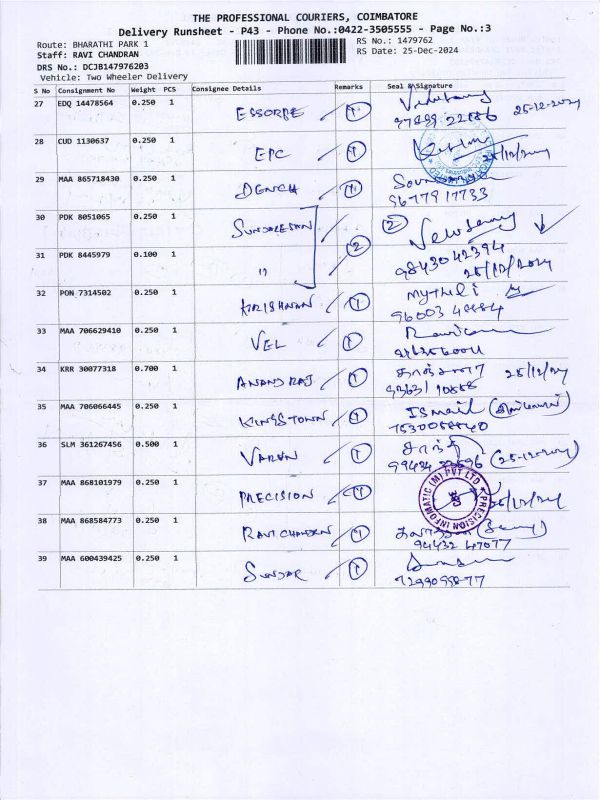 THE PROFESSIONAL COURIERS, COIMBATORE
Delivery Runsheet - P43 - Phone No.:0422-3505555 - Page No.:3
Route: BHARATHI PARK 1 RS No.: 1479762
Staff: RAVI CHANDRAN RS Date: 25-Dec-2024
DRS No.: DCJB147976203
Vehicle: Two Wheeler Delivery
S No Consignment No Weight PCS Consignee Details Remarks Seal & Signature
27 EDQ 14478564 0.250 1 ESSORPE 1 25-12-2024
28 CUD 1130637 0.250 1 EPC 1 25/12/2024
29 MAA 865718430 0.250 1 DENCH 1
9677917733
30 PDK 8051065 0.250 1 SUNDARESAN 2 2
9843042394
31 PDK 8445979 0.100 1 " 25/12/2024
32 PON 7314502 0.250 1 KRISHNAN 1 Mythili
33 MAA 706629410 0.250 1 VEL 1
34 KRR 30077318 0.700 1 ANANDRAJ 1 25/12/24
9363110888
35 MAA 706066445 0.250 1 KINGSTOWN 1 Ismail
36 SLM 361267456 0.500 1 VARUN 1 சாந்தி
(25-12-2024)
37 MAA 868101979 0.250 1 PRECISION 1 PRECISION INFOMATIC (M) PVT LTD 25/12/24
38 MAA 868584773 0.250 1 RAVICHANDRAN 1
94432 47077
39 MAA 600439425 0.250 1 SUNDAR 1